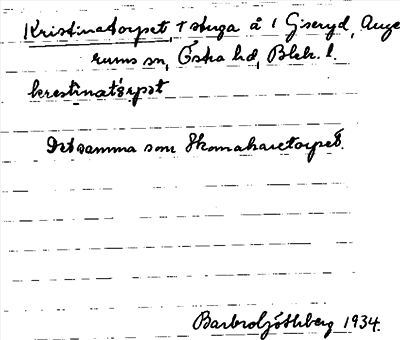 Kristinatorpet, † stuga å 1 Giseryd, Auge
rums sn, Östra hd, Blek. l.
krestinatårpst
Det samma som Skomakaretorpet.
Barbro Göthberg 1934.